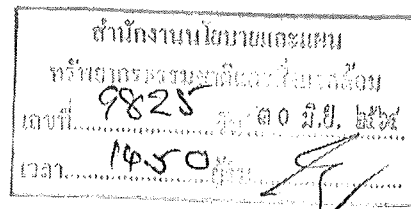 สำนักงานนโยบายและแผน
ทรัพยากรธรรมชาติและสิ่งแวดล้อม
เลขที่ 9825 วันที่ ๓๐ มิ.ย. ๒๕๖๔
เวลา 14.50 ผู้รับ